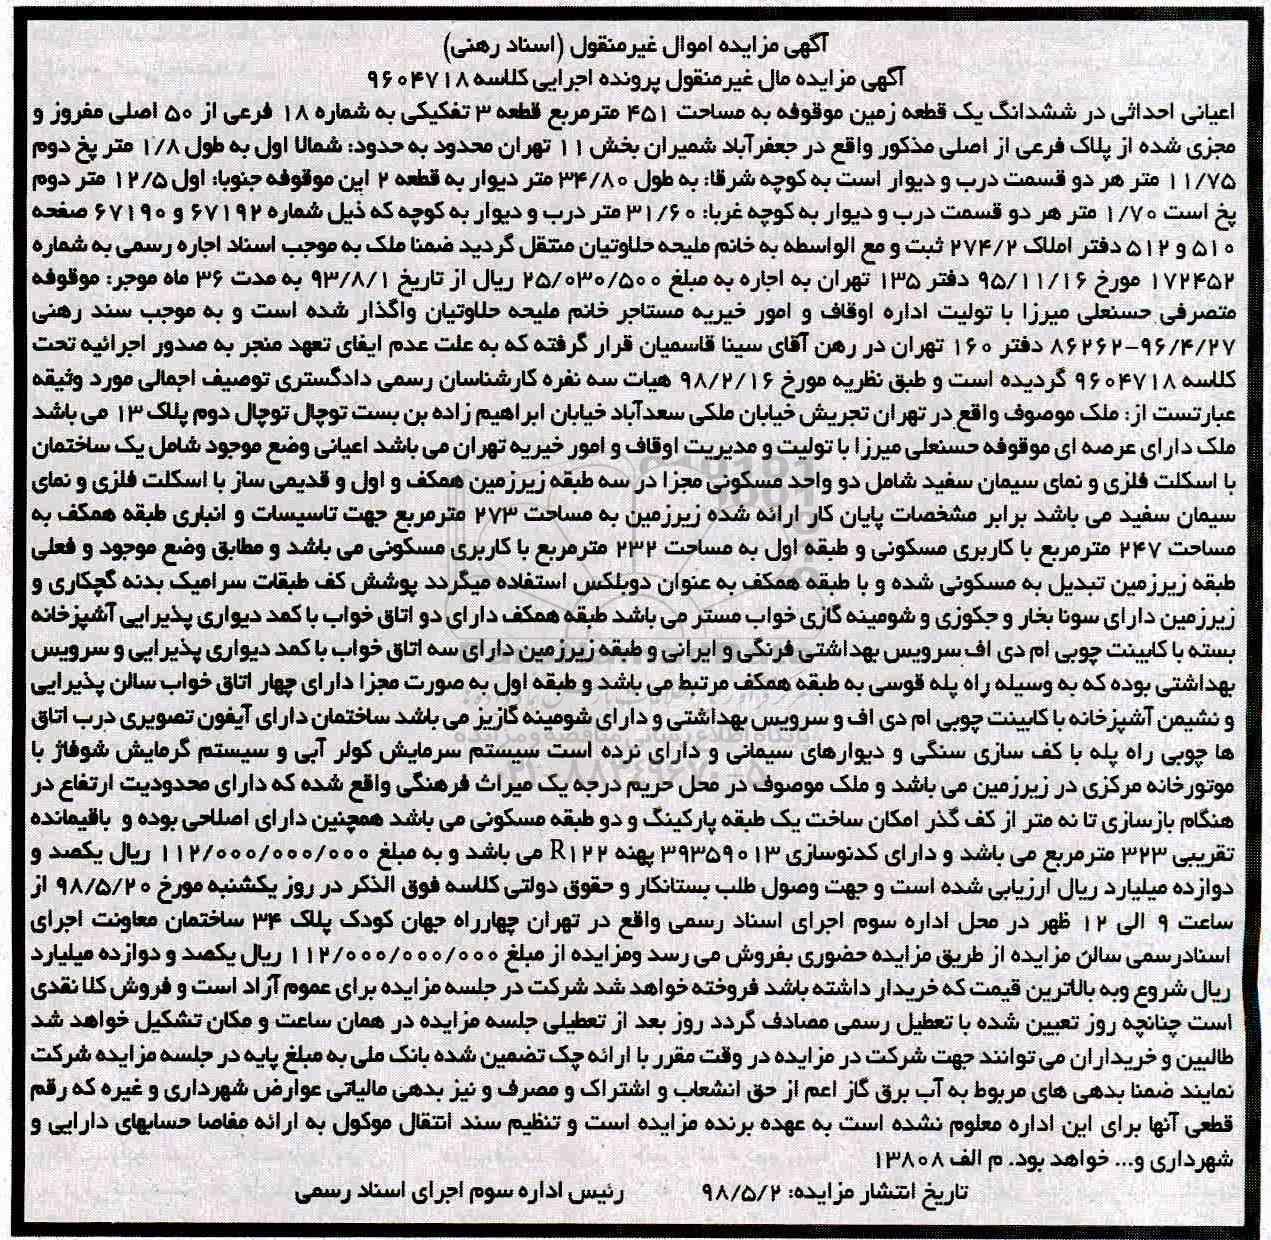 آگهی مزایده اموال غیرمنقول (اسناد رهنی)
آگهی مزایده مال غیرمنقول پرونده اجرایی کلاسه ۹۶۰۴۷۱۸
اعیانی احداثی در ششدانگ یک قطعه زمین موقوفه به مساحت ۴۵۱ مترمربع قطعه ۳ تفکیکی به شماره ۱۸ فرعی از ۵۰ اصلی مفروز و
مجزی شده از پلاک فرعی از اصلی مذکور واقع در جعفرآباد شمیران بخش ۱۱ تهران محدود به حدود: شمالا اول به طول ۱/۸ متر پخ دوم
۱۱/۷۵ متر هر دو قسمت درب و دیوار است به کوچه شرقا: به طول ۳۴/۸۰ متر دیوار به قطعه ۲ این موقوفه جنوبا: اول ۱۲/۵ متر دوم
پخ است ۱/۷۰ متر هر دو قسمت درب و دیوار به کوچه غربا: ۳۱/۶۰ متر درب و دیوار به کوچه که ذیل شماره ۶۷۱۹۲ و ۶۷۱۹۰ صفحه
۵۱۰ و ۵۱۲ دفتر املاک ۲۷۴/۲ ثبت و مع الواسطه به خانم ملیحه حلاوتیان منتقل گردید ضمنا ملک به موجب اسناد اجاره رسمی به شماره
۱۷۲۴۵۲ مورخ ۹۵/۱۱/۱۶ دفتر ۱۳۵ تهران به اجاره به مبلغ ۲۵/۰۳۰/۵۰۰ ریال از تاریخ ۹۳/۸/۱ به مدت ۳۶ ماه موجر: موقوفه
متصرفی حسنعلی میرزا با تولیت اداره اوقاف و امور خیریه مستاجر خانم ملیحه حلاوتیان واگذار شده است و به موجب سند رهنی
۸۶۲۶۲-۹۶/۴/۲۷ دفتر ۱۶۰ تهران در رهن آقای سینا قاسمیان قرار گرفته که به علت عدم ایفای تعهد منجر به صدور اجرائیه تحت
کلاسه ۹۶۰۴۷۱۸ گردیده است و طبق نظریه مورخ ۹۸/۲/۱۶ هیات سه نفره کارشناسان رسمی دادگستری توصیف اجمالی مورد وثیقه
عبارتست از: ملک موصوف واقع در تهران تجریش خیابان ملکی سعدآباد خیابان ابراهیم زاده بن بست توچال توچال دوم پلاک ۱۳ می باشد
ملک دارای عرصه ای موقوفه حسنعلی میرزا با تولیت و مدیریت اوقاف و امور خیریه تهران می باشد اعیانی وضع موجود شامل یک ساختمان
با اسکلت فلزی و نمای سیمان سفید شامل دو واحد مسکونی مجزا در سه طبقه زیرزمین همکف و اول و قدیمی ساز با اسکلت فلزی و نمای
سیمان سفید می باشد برابر مشخصات پایان کار ارائه شده زیرزمین به مساحت ۲۷۳ مترمربع جهت تاسیسات و انباری طبقه همکف به
مساحت ۲۴۷ مترمربع با کاربری مسکونی و طبقه اول به مساحت ۲۳۲ مترمربع با کاربری مسکونی می باشد و مطابق وضع موجود و فعلی
طبقه زیرزمین تبدیل به مسکونی شده و با طبقه همکف به عنوان دوبلکس استفاده میگردد پوشش کف طبقات سرامیک بدنه گچکاری و
زیرزمین دارای سونا بخار و جکوزی و شومینه گازی خواب مستر می باشد طبقه همکف دارای دو اتاق خواب با کمد دیواری پذیرایی آشپزخانه
بسته با کابینت چوبی ام دی اف سرویس بهداشتی فرنگی و ایرانی و طبقه زیرزمین دارای سه اتاق خواب با کمد دیواری پذیرایی و سرویس
بهداشتی بوده که به وسیله راه پله قوسی به طبقه همکف مرتبط می باشد و طبقه اول به صورت مجزا دارای چهار اتاق خواب سالن پذیرایی
و نشیمن آشپزخانه با کابینت چوبی ام دی اف و سرویس بهداشتی و دارای شومینه گازیر می باشد ساختمان دارای آیفون تصویری درب اتاق
ها چوبی راه پله با کف سازی سنگی و دیوارهای سیمانی و دارای نرده است سیستم سرمایش کولر آبی و سیستم گرمایش شوفاژ با
موتورخانه مرکزی در زیرزمین می باشد و ملک موصوف در محل حریم درجه یک میراث فرهنگی واقع شده که دارای محدودیت ارتفاع در
هنگام بازسازی تا نه متر از کف گذر امکان ساخت یک طبقه پارکینگ و دو طبقه مسکونی می باشد همچنین دارای اصلاحی بوده و باقیمانده
تقریبی ۳۲۳ مترمربع می باشد و دارای کدنوسازی ۳۹۳۵۹۰۱۳ پهنه R۱۲۲ می باشد و به مبلغ ۱۱۲/۰۰۰/۰۰۰/۰۰۰ ریال یکصد و
دوازده میلیارد ریال ارزیابی شده است و جهت وصول طلب بستانکار و حقوق دولتی کلاسه فوق الذکر در روز یکشنبه مورخ ۹۸/۵/۲۰ از
ساعت ۹ الی ۱۲ ظهر در محل اداره سوم اجرای اسناد رسمی واقع در تهران چهارراه جهان کودک پلاک ۳۴ ساختمان معاونت اجرای
اسنادرسمی سالن مزایده از طریق مزایده حضوری بفروش می رسد ومزایده از مبلغ ۱۱۲/۰۰۰/۰۰۰/۰۰۰ ریال یکصد و دوازده میلیارد
ریال شروع وبه بالاترین قیمت که خریدار داشته باشد فروخته خواهد شد شرکت در جلسه مزایده برای عموم آزاد است و فروش کلا نقدی
است چنانچه روز تعیین شده با تعطیل رسمی مصادف گردد روز بعد از تعطیلی جلسه مزایده در همان ساعت و مکان تشکیل خواهد شد
طالبین و خریداران می توانند جهت شرکت در مزایده در وقت مقرر با ارائه چک تضمین شده بانک ملی به مبلغ پایه در جلسه مزایده شرکت
نمایند ضمنا بدهی های مربوط به آب برق گاز اعم از حق انشعاب و اشتراک و مصرف و نیز بدهی مالیاتی عوارض شهرداری و غیره که رقم
قطعی آنها برای این اداره معلوم نشده است به عهده برنده مزایده است و تنظیم سند انتقال موکول به ارائه مفاصا حسابهای دارایی و
شهرداری و... خواهد بود. م الف ۱۳۸۰۸
تاریخ انتشار مزایده: ۹۸/۵/۲ رئیس اداره سوم اجرای اسناد رسمی